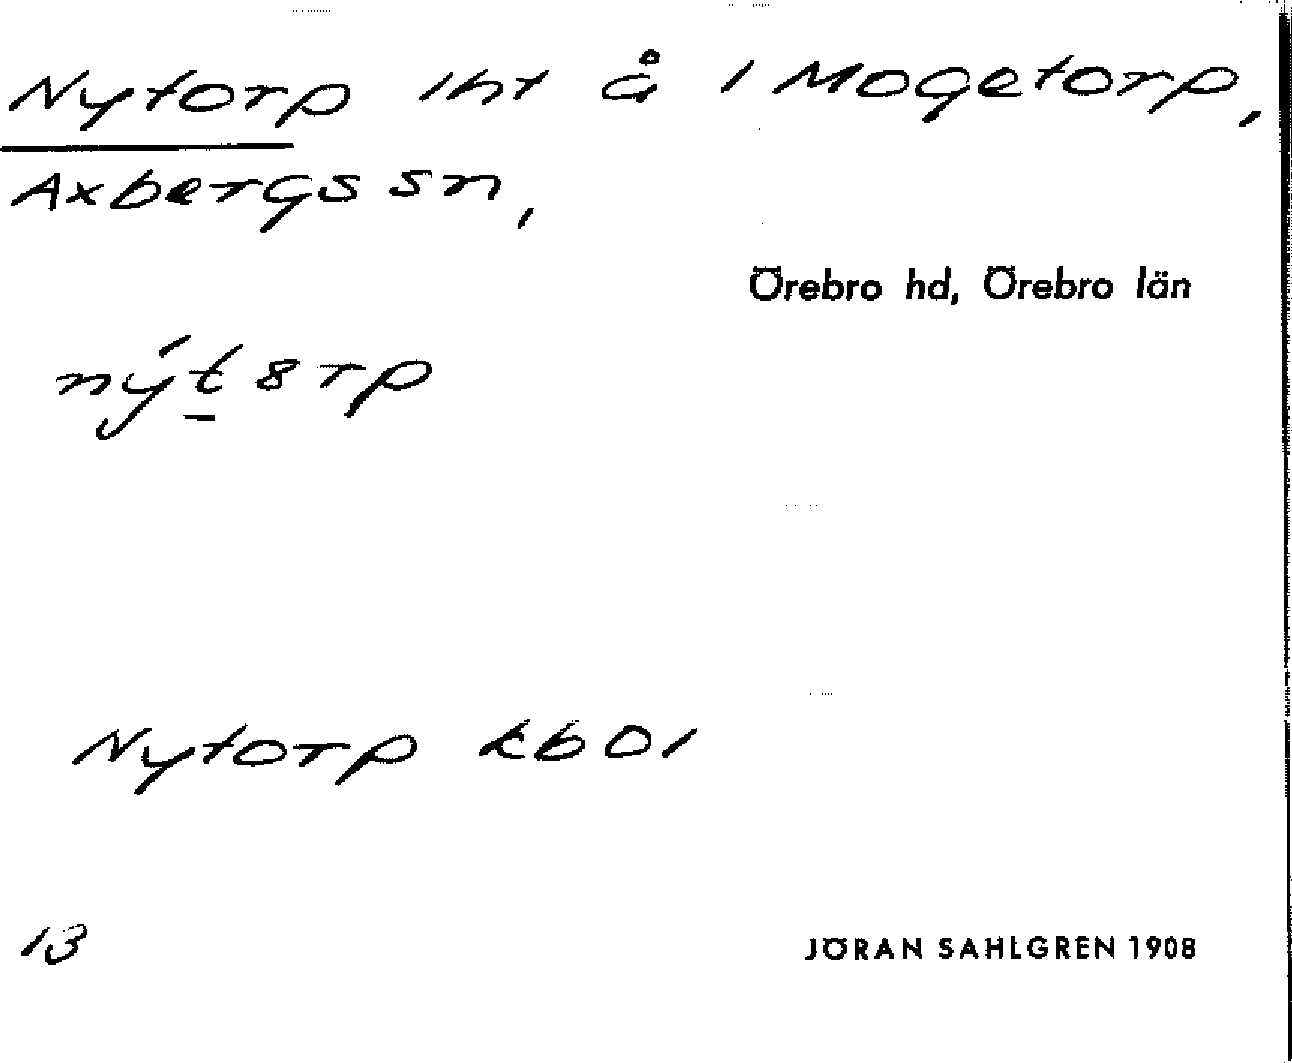 Nytorp lht å 1 Mogetorp,
Axbergs sn,
Örebro hd, Örebro län
nýt8rp
Nytorp kb 01
13
JÖRAN SAHLGREN 1908